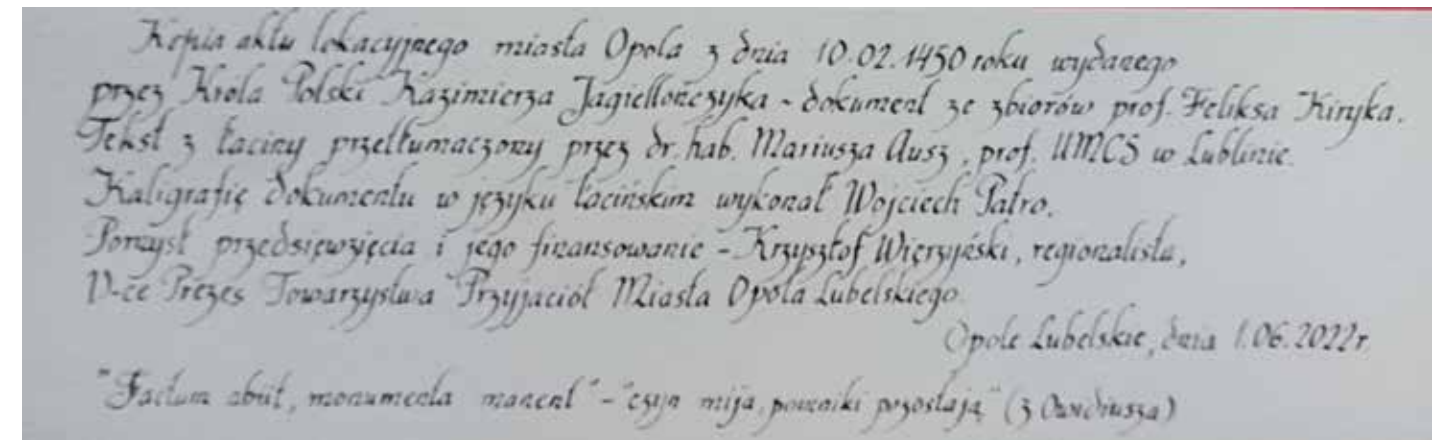 Kopia aktu lokacyjnego miasta Opola z dnia 10.02.1450 roku wydanego
przez Króla Polski Kazimierza Jagiellończyka - dokument ze zbiorów prof. Feliksa Kiryka.
Tekst z łaciny przetłumaczony przez dr. hab. Mariusza Ausz, prof. UMCS w Lublinie.
Kaligrafię dokumentu w języku łacińskim wykonał Wojciech Patro.
Pomysł przedsięwzięcia i jego finansowanie - Krzysztof Wierzyński, regionalista,
V-ce Prezes Towarzystwa Przyjaciół Miasta Opola Lubelskiego.
Opole Lubelskie, dnia 1.06.2022r.
"Factum abiit, monumenta manent" - "czyn mija, pomniki pozostają" (z Owidiusza)